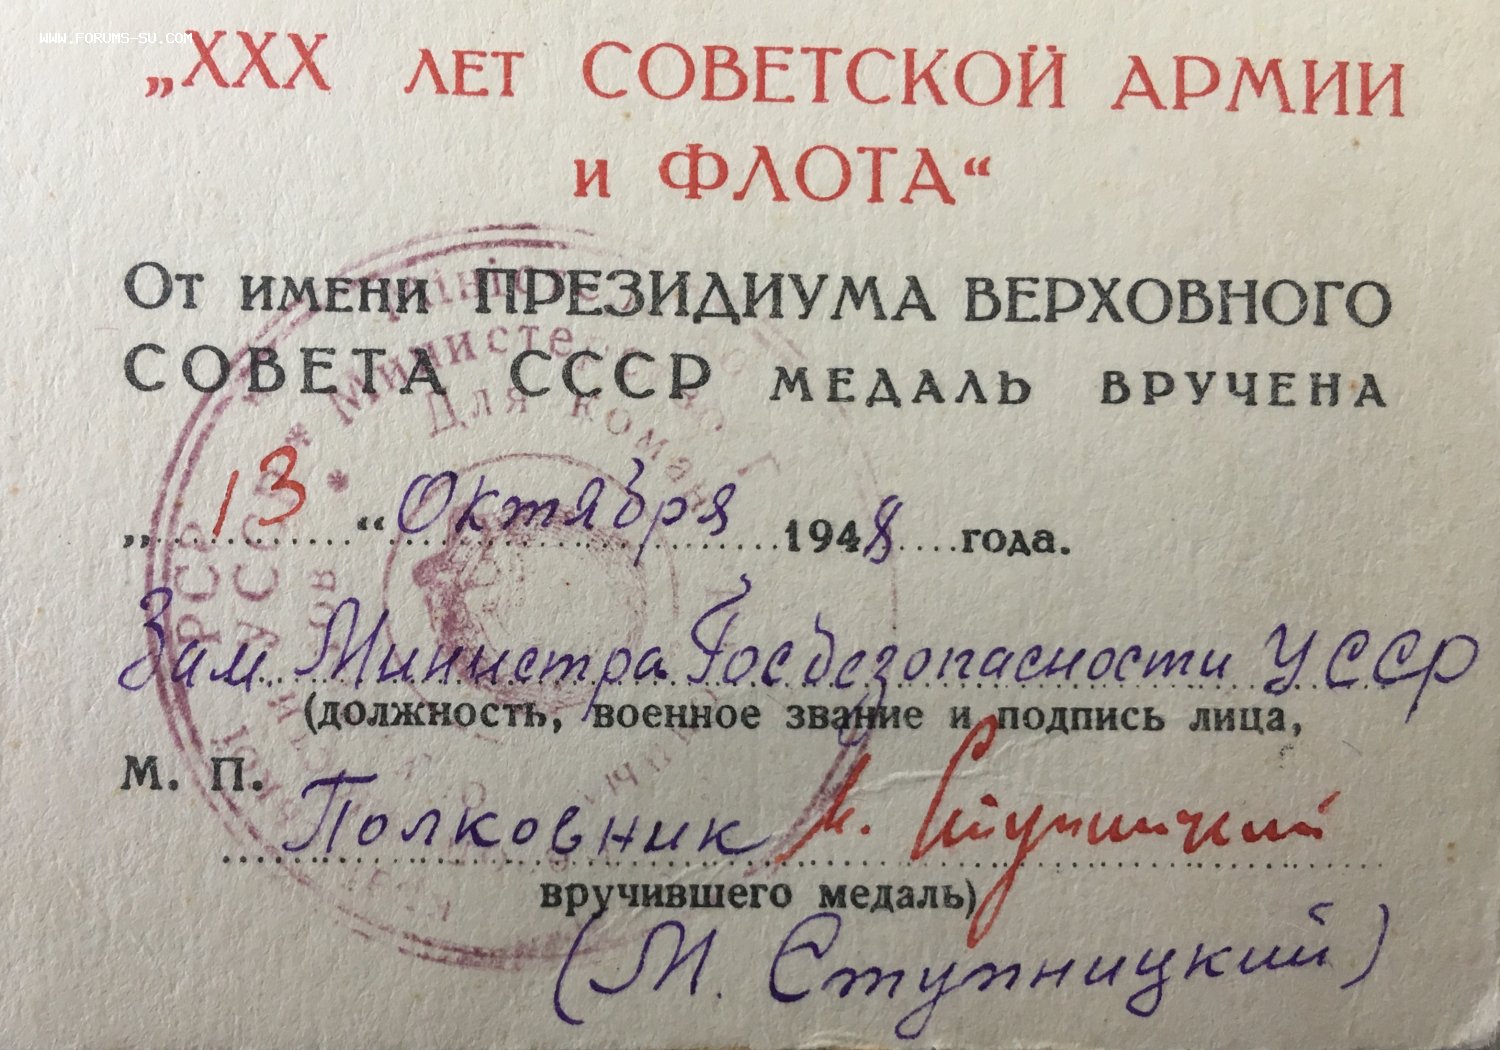 WWW.FORUMS-SU.COM
„XXX ЛЕТ СОВЕТСКОЙ АРМИИ
и ФЛОТА“
От имени ПРЕЗИДИУМА ВЕРХОВНОГО
СОВЕТА СССР МЕДАЛЬ ВРУЧЕНА
„13“ Октября 1948 года.
Зам. Министра Госбезопасности УССР
(должность, военное звание и подпись лица,
М. П.
Полковник М. Ступницкий
вручившего медаль)
(М. Ступницкий)
Министерство
Для
УССР
РСР